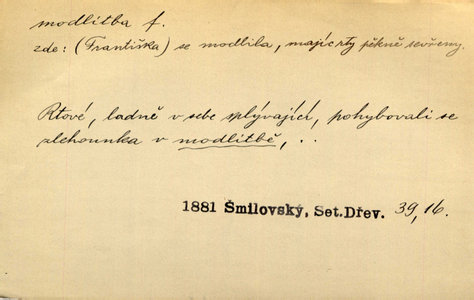 modlitba f.
zde: (Františka) se modlila, majíc rty pěkně sevřeny.
Rtové, ladně v sebe splývající, pohybovali se
zlehounka v modlitbě, ..
1881 Šmilovský, Set.Dřev. 39,16.